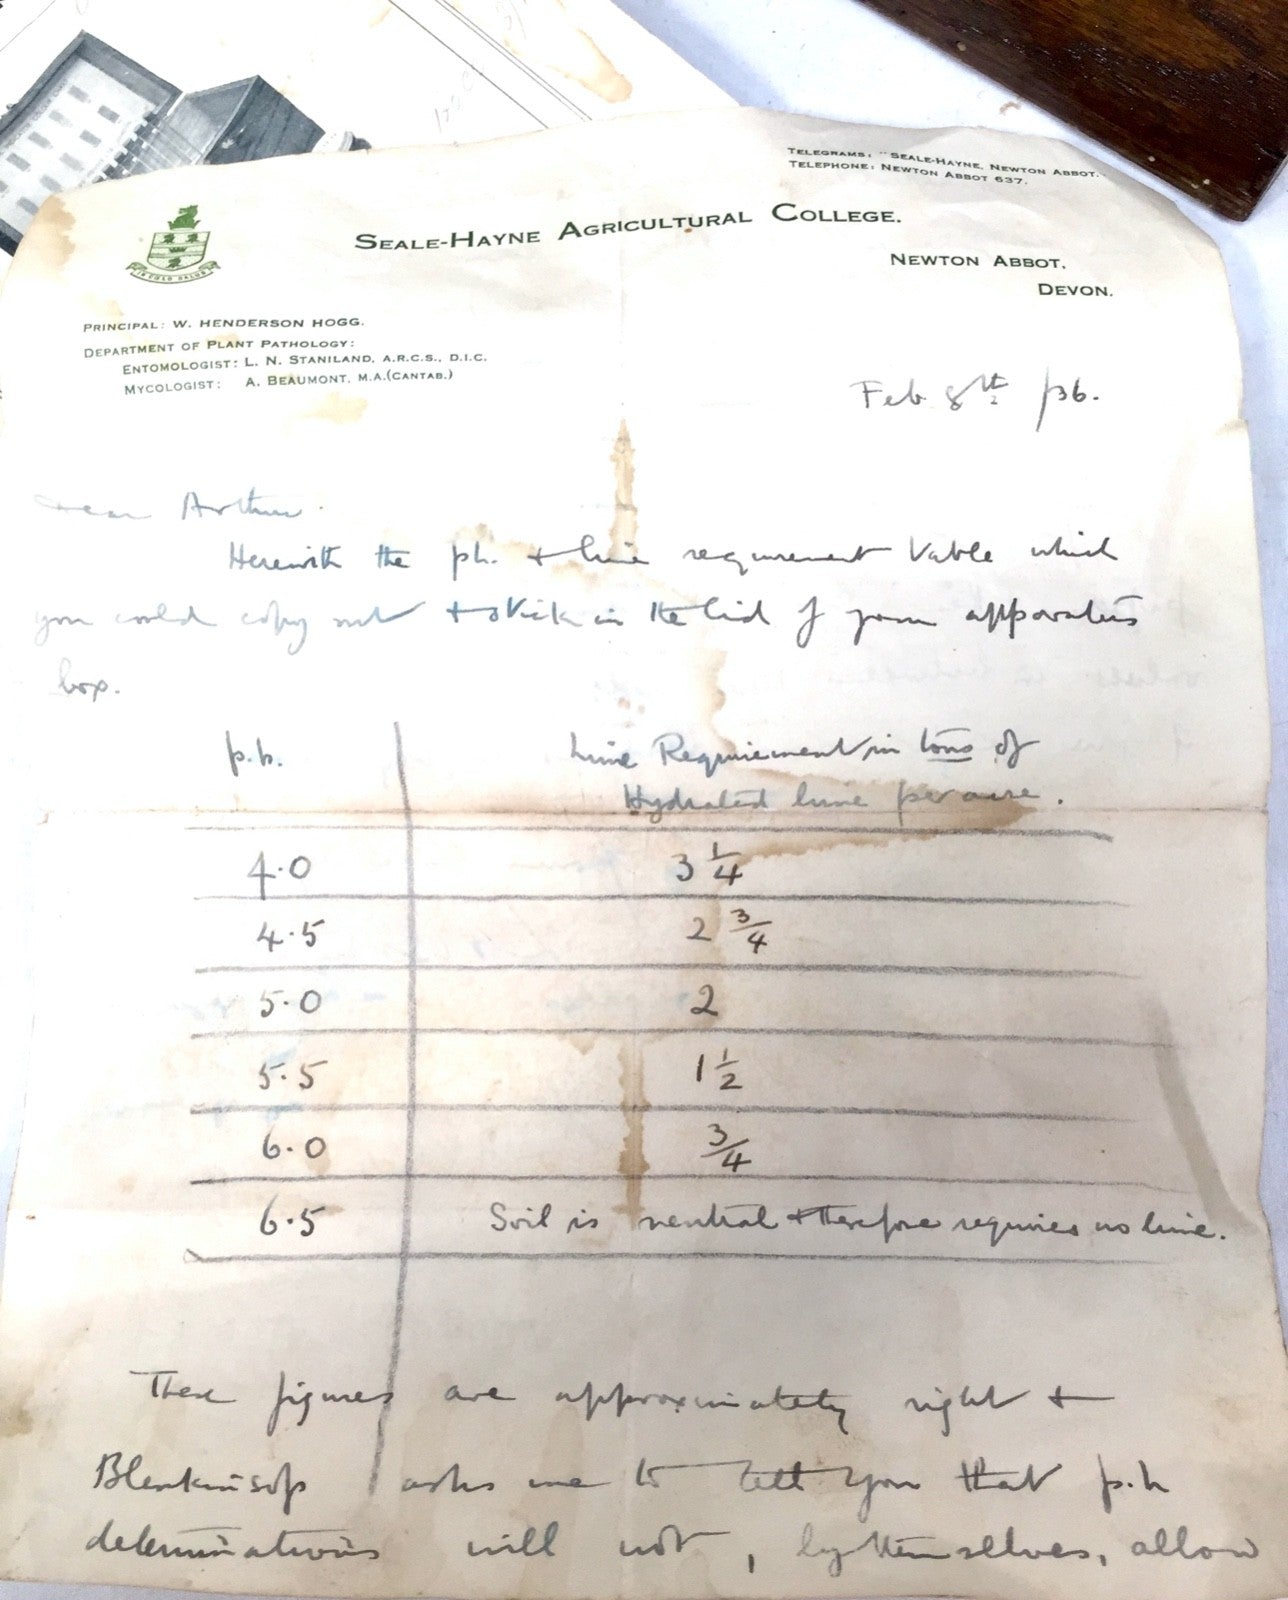 TELEGRAMS: "SEALE-HAYNE, NEWTON ABBOT.
TELEPHONE: NEWTON ABBOT 637.
SEALE-HAYNE AGRICULTURAL COLLEGE.
NEWTON ABBOT,
DEVON.
PRINCIPAL: W. HENDERSON HOGG.
DEPARTMENT OF PLANT PATHOLOGY:
ENTOMOLOGIST: L. N. STANILAND, A.R.C.S., D.I.C.
MYCOLOGIST: A. BEAUMONT, M.A.(CANTAB.)
Feb 8th /36.
Dear Arthur.
Herewith the ph. + lime requirement table which
you could copy out + stick in the lid of your apparatus
box.
p.h. Lime Requirement in tons of
Hydrated lime per acre.
4.0 3 1/4
4.5 2 3/4
5.0 2
5.5 1 1/2
6.0 3/4
6.5 Soil is neutral + therefore requires no lime.
These figures are approximately right +
Blenkinsop asks me to tell you that p.h
determinations will not, by themselves, allow